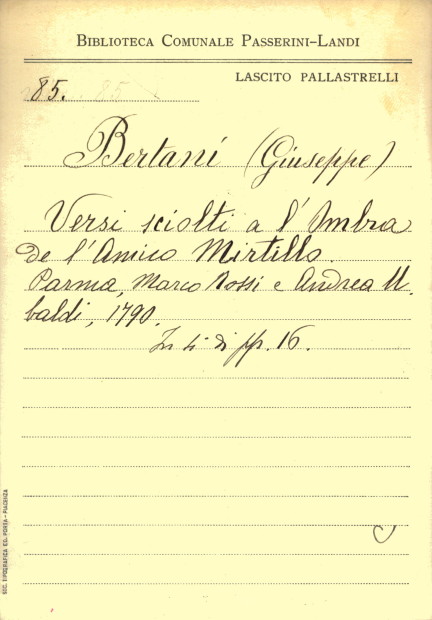 BIBLIOTECA COMUNALE PASSERINI-LANDI
LASCITO PALLASTRELLI
85.
Bertani (Giuseppe)
Versi sciolti a l'Ombra
de l'Amico Mirtillo.
Parma, Marco Rossi e Andrea U.
baldi, 1790.
In 4° di pp. 16.
SOC. TIPOGRAFICA ED. PORTA - PIACENZA